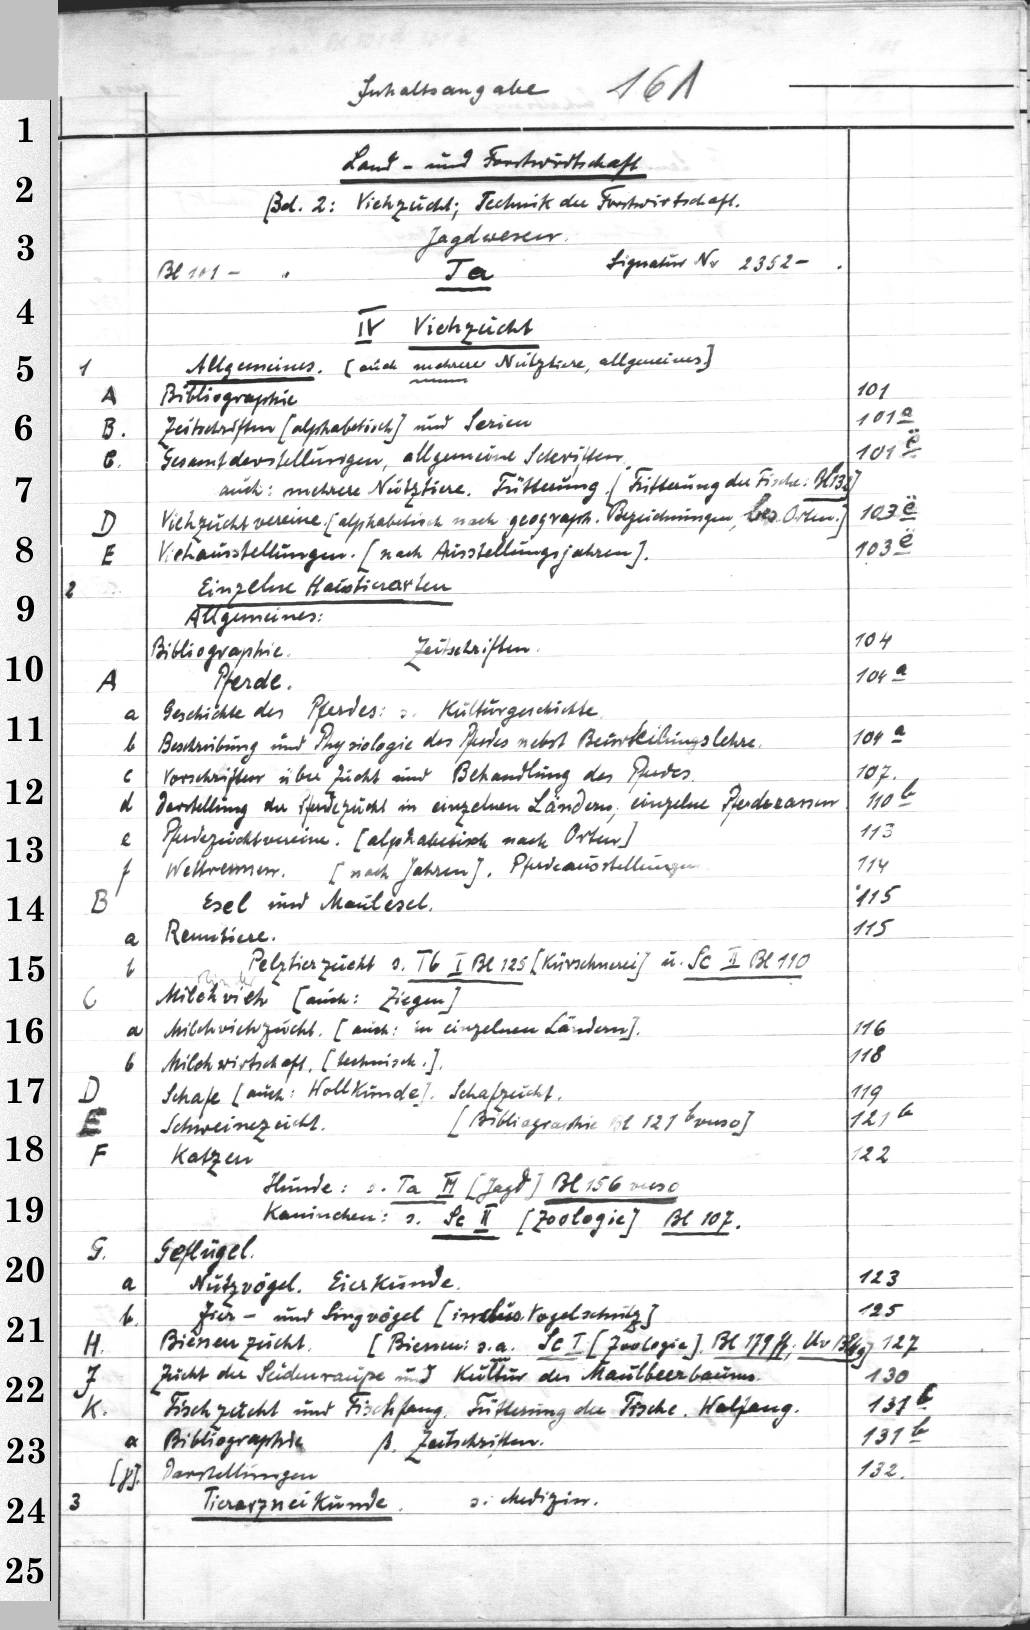 Inhaltsangabe 161
1
Land - und Forstwirtschaft
2
Bd. 2: Viehzucht; Technik der Forstwirtschaft.
3
Jagdwesen.
Bl 101 - . Ta Signatur Nr 2352 - .
4
IV Viehzucht
5
1 Allgemeines. [auch mehrere Nutztiere, allgemeines]
A Bibliographie 101
6
B. Zeitschriften [alphabetisch] und Serien 101 a
C. Gesamtdarstellungen, allgemeine Schriften, 101
7
auch: mehrere Nutztiere. Fütterung. [Fütterung der Fische: Bl 132]
D Viehzuchtvereine. [alphabetisch nach geograph. Bezeichnungen, bes. Orten.] 103
8
E Viehausstellungen. [nach Ausstellungsjahren]. 103
2 Einzelne Haustierarten
9
Allgemeines:
Bibliographie. Zeitschriften. 104
10
A Pferde. 104 a
a Geschichte des Pferdes: s. Kulturgeschichte.
11
b Beschreibung und Physiologie des Pferdes nebst Beurteilungslehre. 104 a
c Vorschriften über Zucht und Behandlung des Pferdes. 107.
12
d Darstellung der Pferdezucht in einzelnen Ländern, einzelne Pferderassen 110 b
e Pferdezuchtvereine. [alphabetisch nach Orten] 113
13
f Wettrennen. [nach Jahren]. Pferdeausstellungen 114
14
B Esel und Maulesel. 115
a Renntiere. 115
15
b Pelztierzucht s. Tb I Bl 125 [Kürschnerei] u. Sc II Bl 110
C Milchvieh [auch: Ziegen]
16
a Milchviehzucht. [auch: in einzelnen Ländern]. 116
b Milchwirtschaft. [technisch.]. 118
17
D Schafe [auch: Wollkunde]. Schafzucht. 119
E Schweinezucht. [Bibliographie Bl 121 b verso] 121 b
18
F Katzen 122
Hunde: s. Ta VI [Jagd] Bl 156 verso
19
Kaninchen: s. Sc II [Zoologie] Bl 107.
G. Geflügel.
20
a Nutzvögel. Eierkunde. 123
b. Zier - und Singvögel [ Vogelschutz] 125
21
H. Bienenzucht. [Bienen: s. a. Sc I [Zoologie]. Bl 179 ff; Uv 127
J Zucht der Seidenraupe und Kultur des Maulbeerbaums. 130
22
K. Fischzucht und Fischfang. Fütterung der Fische. Walfang. 131 b
23
a Bibliographie β. Zeitschriften. 131 b
[γ]. Darstellungen 132.
24
3 Tierarzneikunde. s. Medizin.
25